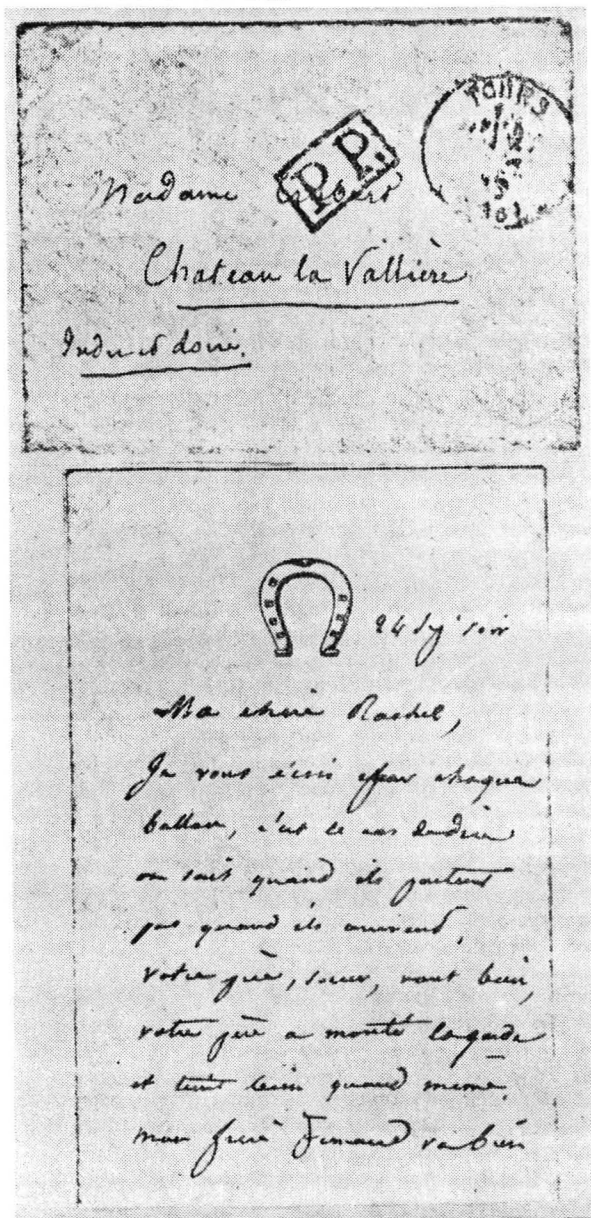 TOURS
P.P.
Madame
Chateau la Vallière
Indre et Loire.
24 7bre soir
Ma chère Rachel,
Je vous écris par chaque
ballon, c'est le cas de dire
on sait quand ils partent
pas quand ils arrivent,
votre père, sœur, vont bien,
votre père a monté la garde
et tient bien quand même.
mon frère Fernand va bien